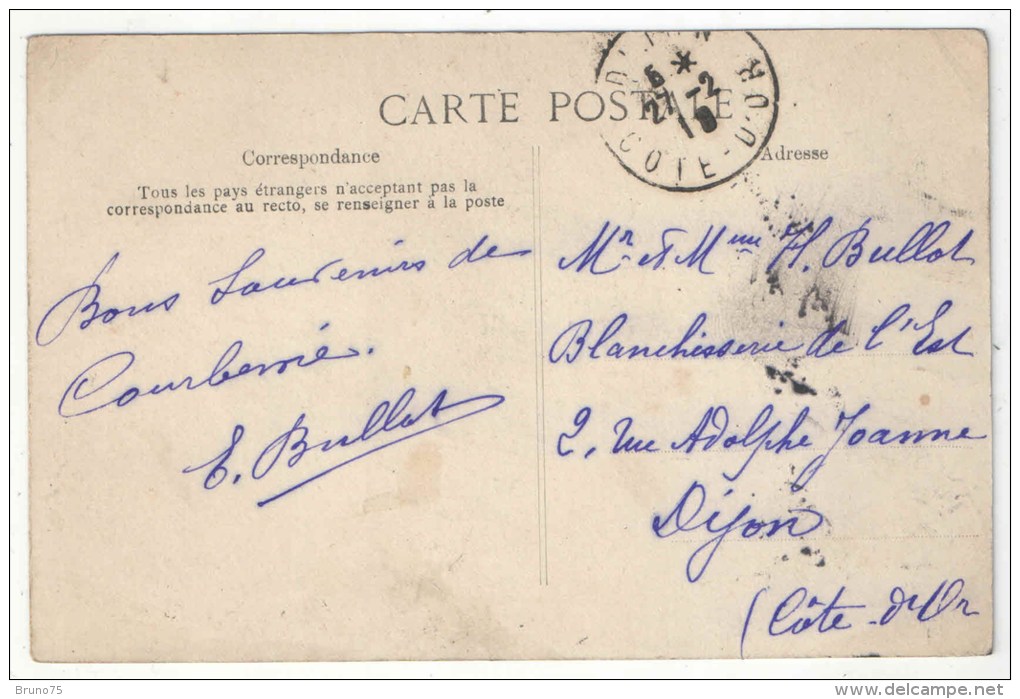 CARTE POSTALE
Correspondance
Tous les pays étrangers n'acceptant pas la
correspondance au recto, se renseigner à la poste
Bons Souvenirs de
Courbevoie.
E. Bullot
DIJON
5 *
27 - 2
COTE-D'OR
Adresse
Mr et Mme H. Bullot
Blanchisserie de l'Est
2, rue Adolphe Joanne
Dijon
(Côte-d'Or
Bruno75
www.delcampe.net